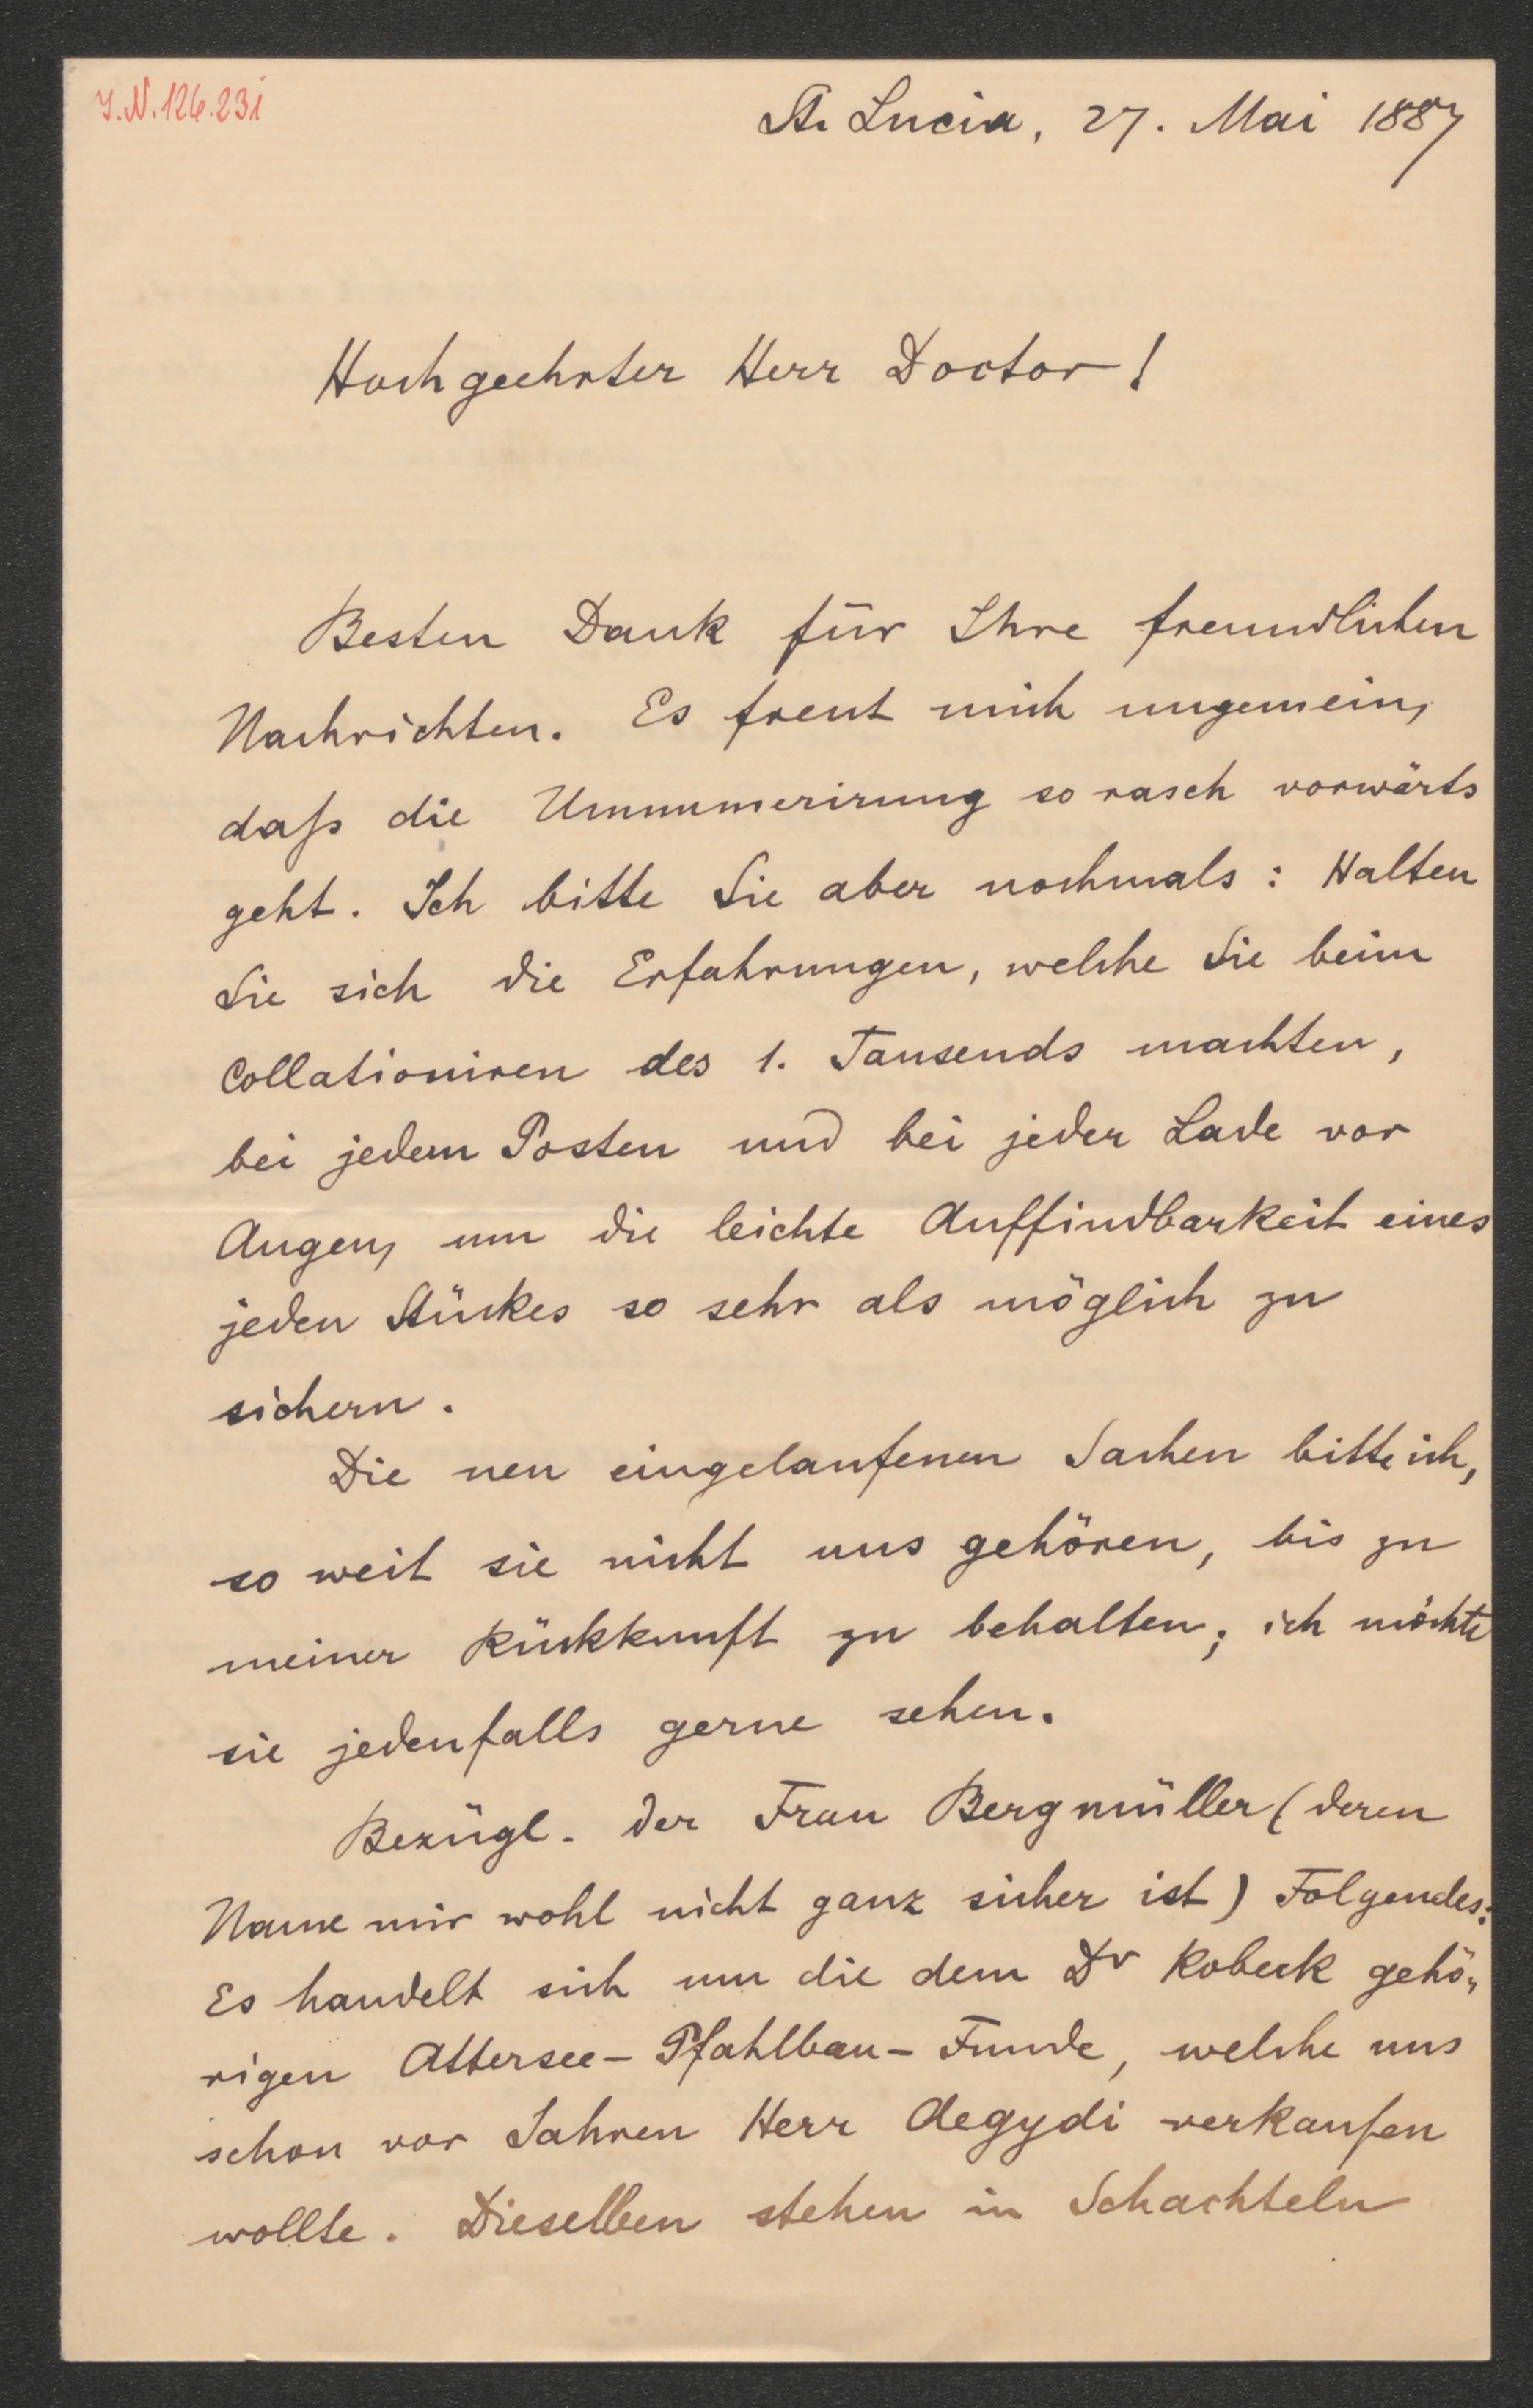 J.N. 126.231
St. Lucia, 27. Mai 1887
Hochgeehrter Herr Doctor!
Besten Dank für Ihre freundlichen
Nachrichten. Es freut mich ungemein,
daſs die Umnumerirung so rasch vorwärts
geht. Ich bitte Sie aber nochmals: Halten
Sie sich die Erfahrungen, welche Sie beim
Collationiren des 1. Tausends machten,
bei jedem Posten und bei jeder Lade vor
Augen, um die leichte Auffindbarkeit eines
jeden Stückes so sehr als möglich zu
sichern.
Die neu eingelaufenen Sachen bitte ich,
so weit sie nicht uns gehören, bis zu
meiner Rückkunft zu behalten; ich möchte
sie jedenfalls gerne sehen.
Bezügl. der Frau Bergmüller (deren
Name mir wohl nicht ganz sicher ist) Folgendes:
Es handelt sich um die dem Dr Kobeck gehö„
rigen Attersee-Pfahlbau-Funde, welche uns
schon vor Jahren Herr Aegydi verkaufen
wollte. Dieselben stehen in Schachteln